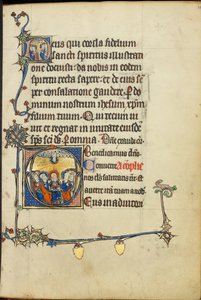 Deus qui corda fidelium
sancti spiritus illustrati
one docuisti: da nobis in eodem
spiritu recta sapere: et de eius se
per consolatione gaudere. Per
dominum nostrum ihesum xpm
filium tuum. Qui tecum ui
uit et regnat in unitate eiusde
sps sci ds. Per omnia.
benedicamus dno.
Conuerte
nos deus salutaris nr. et
auerte iram tuam a nob
Deus in adiutori